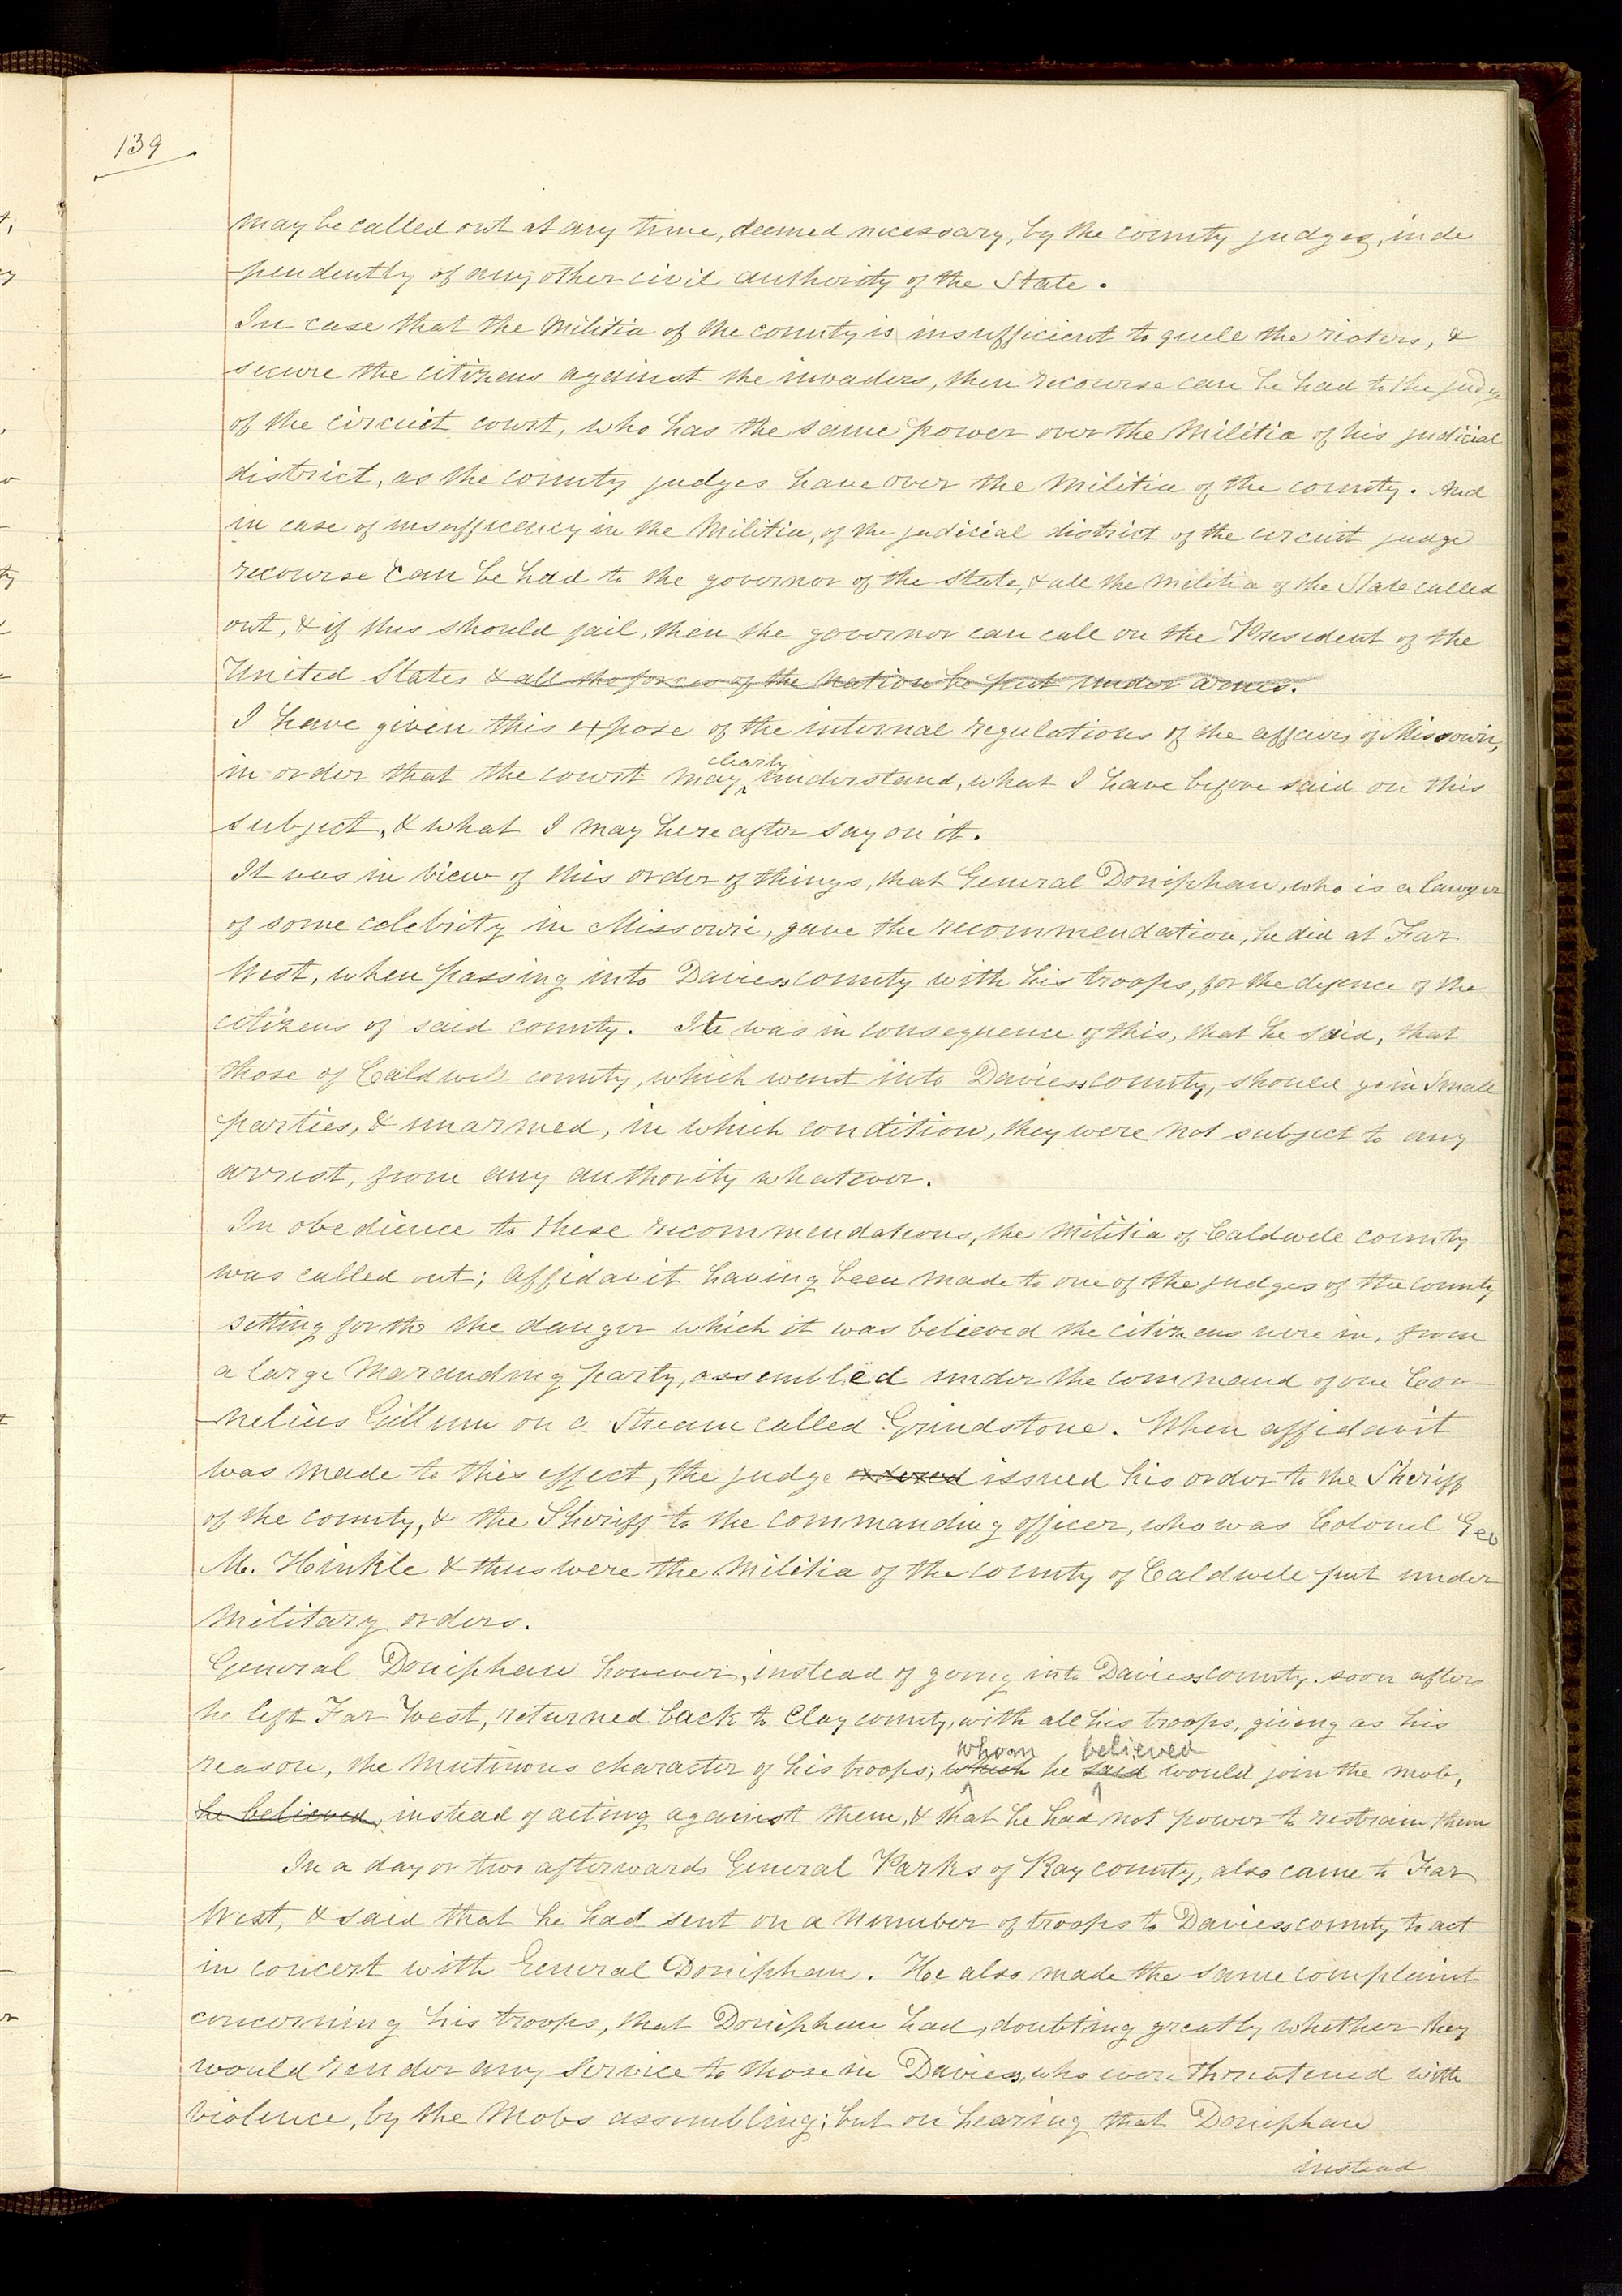 139
may be called out at any time, deemed necessary, by the county judges, inde
pendently of any other civil authority of the State.
In case that the Militia of the county is insufficient to quell the rioters, &
secure the citizens against the invaders, then recourse can be had to the judge
of the circuit court, who has the same power over the Militia of his judicial
district, as the county judges have over the Militia of the county. And
in case of insufficiency in the Militia, of the judicial district of the circuit judge
recourse can be had to the governor of the State, & all the militia of the State called
out, & if this should fail, then the governor can call on the President of the
United States & all the forces of the nation be put under arms.
I have given this expose of the internal regulations of the affairs of Missouri,
clearly
in order that the court may understand, what I have before said on this
subject, & what I may hereafter say on it.
It was in view of this order of things, that General Doniphan, who is a lawyer
of some celebrity in Missouri, gave the recommendation, he did at Far
West, when passing into Daviess county with his troops, for the defence of the
citizens of said county. It was in consequence of this, that he said, that
those of Caldwell county, which went into Daviess county, should go in small
parties, & unarmed, in which condition, they were not subject to any
arrest, from any authority whatever.
In obedience to these recommendations, the Militia of Caldwell county
was called out; affidavit having been made to one of the judges of the county
setting forth the danger which it was believed the citizens were in, from
a large marauding party, assembled under the command of one Cor-
nelius Gillum on a Stream called Grindstone. When affidavit
was made to this effect, the judge ordered issued his order to the Sheriff
of the county, & the Sheriff to the commanding officer, who was Colonel Geo
M. Hinkle & thus were the Militia of the county of Caldwell put under
military orders.
General Doniphan however, instead of going into Daviess county, soon after
he left Far West, returned back to Clay county, with all his troops, giving as his
whom believed
reason, the mutinous character of his troops; which he said would join the mob,
he believed, instead of acting against them, & that he had not power to restrain them
In a day or two afterwards General Parks of Ray county, also came to Far
West, & said that he had sent on a number of troops to Daviess county to act
in concert with General Doniphan. He also made the same complaint
concerning his troops, that Doniphan had, doubting greatly whether they
would render any service to those in Daviess, who were threatened with
violence, by the mobs assembling; but on hearing that Doniphan
instead